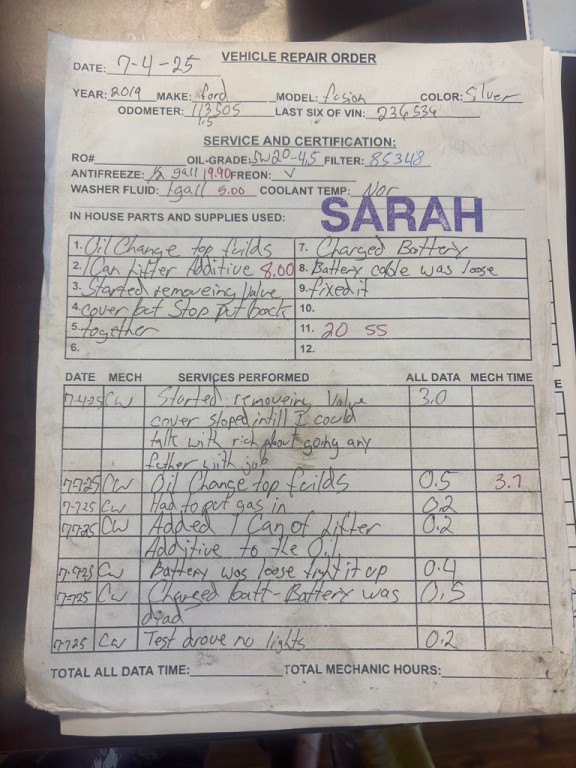 VEHICLE REPAIR ORDER
DATE: 7-4-25
YEAR: 2019 MAKE: ford MODEL: fusion COLOR: Silver
ODOMETER: 113505 LAST SIX OF VIN: 236534
SERVICE AND CERTIFICATION:
RO# OIL-GRADE: 5W20-4,5 FILTER: 85348
ANTIFREEZE: gall 19.90 FREON: ✓
WASHER FLUID: 1gall 5.00 COOLANT TEMP: Nor
SARAH
IN HOUSE PARTS AND SUPPLIES USED:
1. Oil Change top fuilds 7. Charged Battery
2. 1 Can Lifter Additive 8.00 8. Battery cable was loose
3. Started removeing Valve 9. fixed it
4. cover but Stop put back 10.
5. together 11. 20 55
6. 12.
DATE MECH SERVICES PERFORMED ALL DATA MECH TIME
7-4-25 CW Started removeing Valve 3.0
cover stoped intill I could
talk with rich about going any
futher with job
7-7-25 CW Oil Change top fuilds 0.5 3.7
7-7-25 CW Had to put gas in 0.2
7-7-25 CW Added 1 Can of Lifter 0.2
Additive to the Oil
7-7-25 CW Battery was loose tight it up 0.4
7-7-25 CW Charged batt-Battery was 0.5
dead
7-7-25 CW Test drove no lights 0.2
TOTAL ALL DATA TIME: TOTAL MECHANIC HOURS: